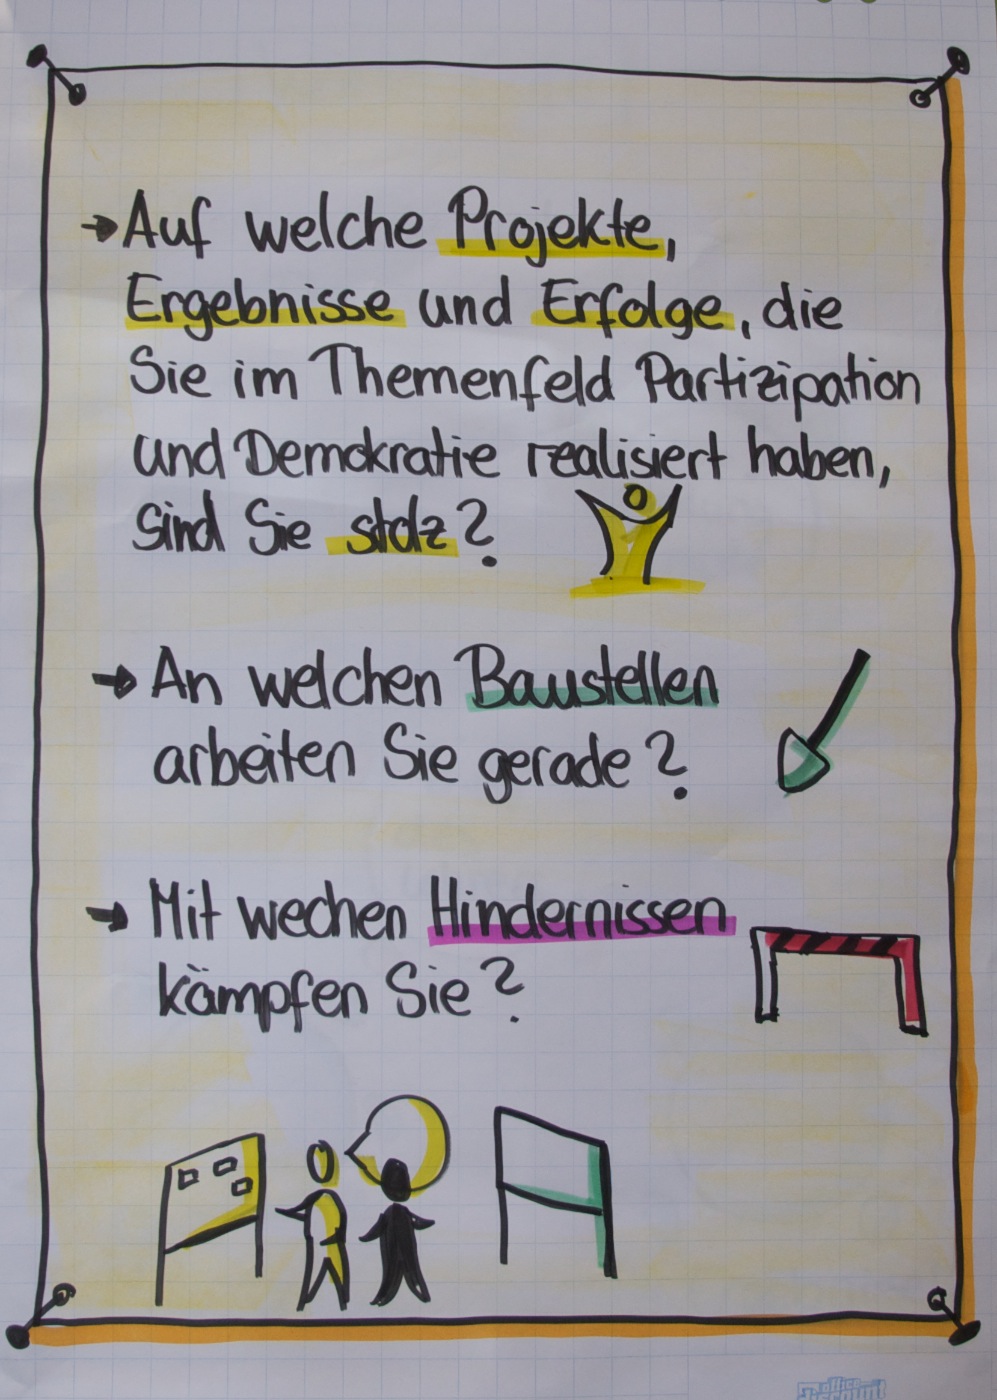 → Auf welche Projekte,
Ergebnisse und Erfolge, die
Sie im Themenfeld Partizipation
und Demokratie realisiert haben,
sind Sie stolz?
→ An welchen Baustellen
arbeiten Sie gerade?
→ Mit wechen Hindernissen
kämpfen Sie?
office
discount